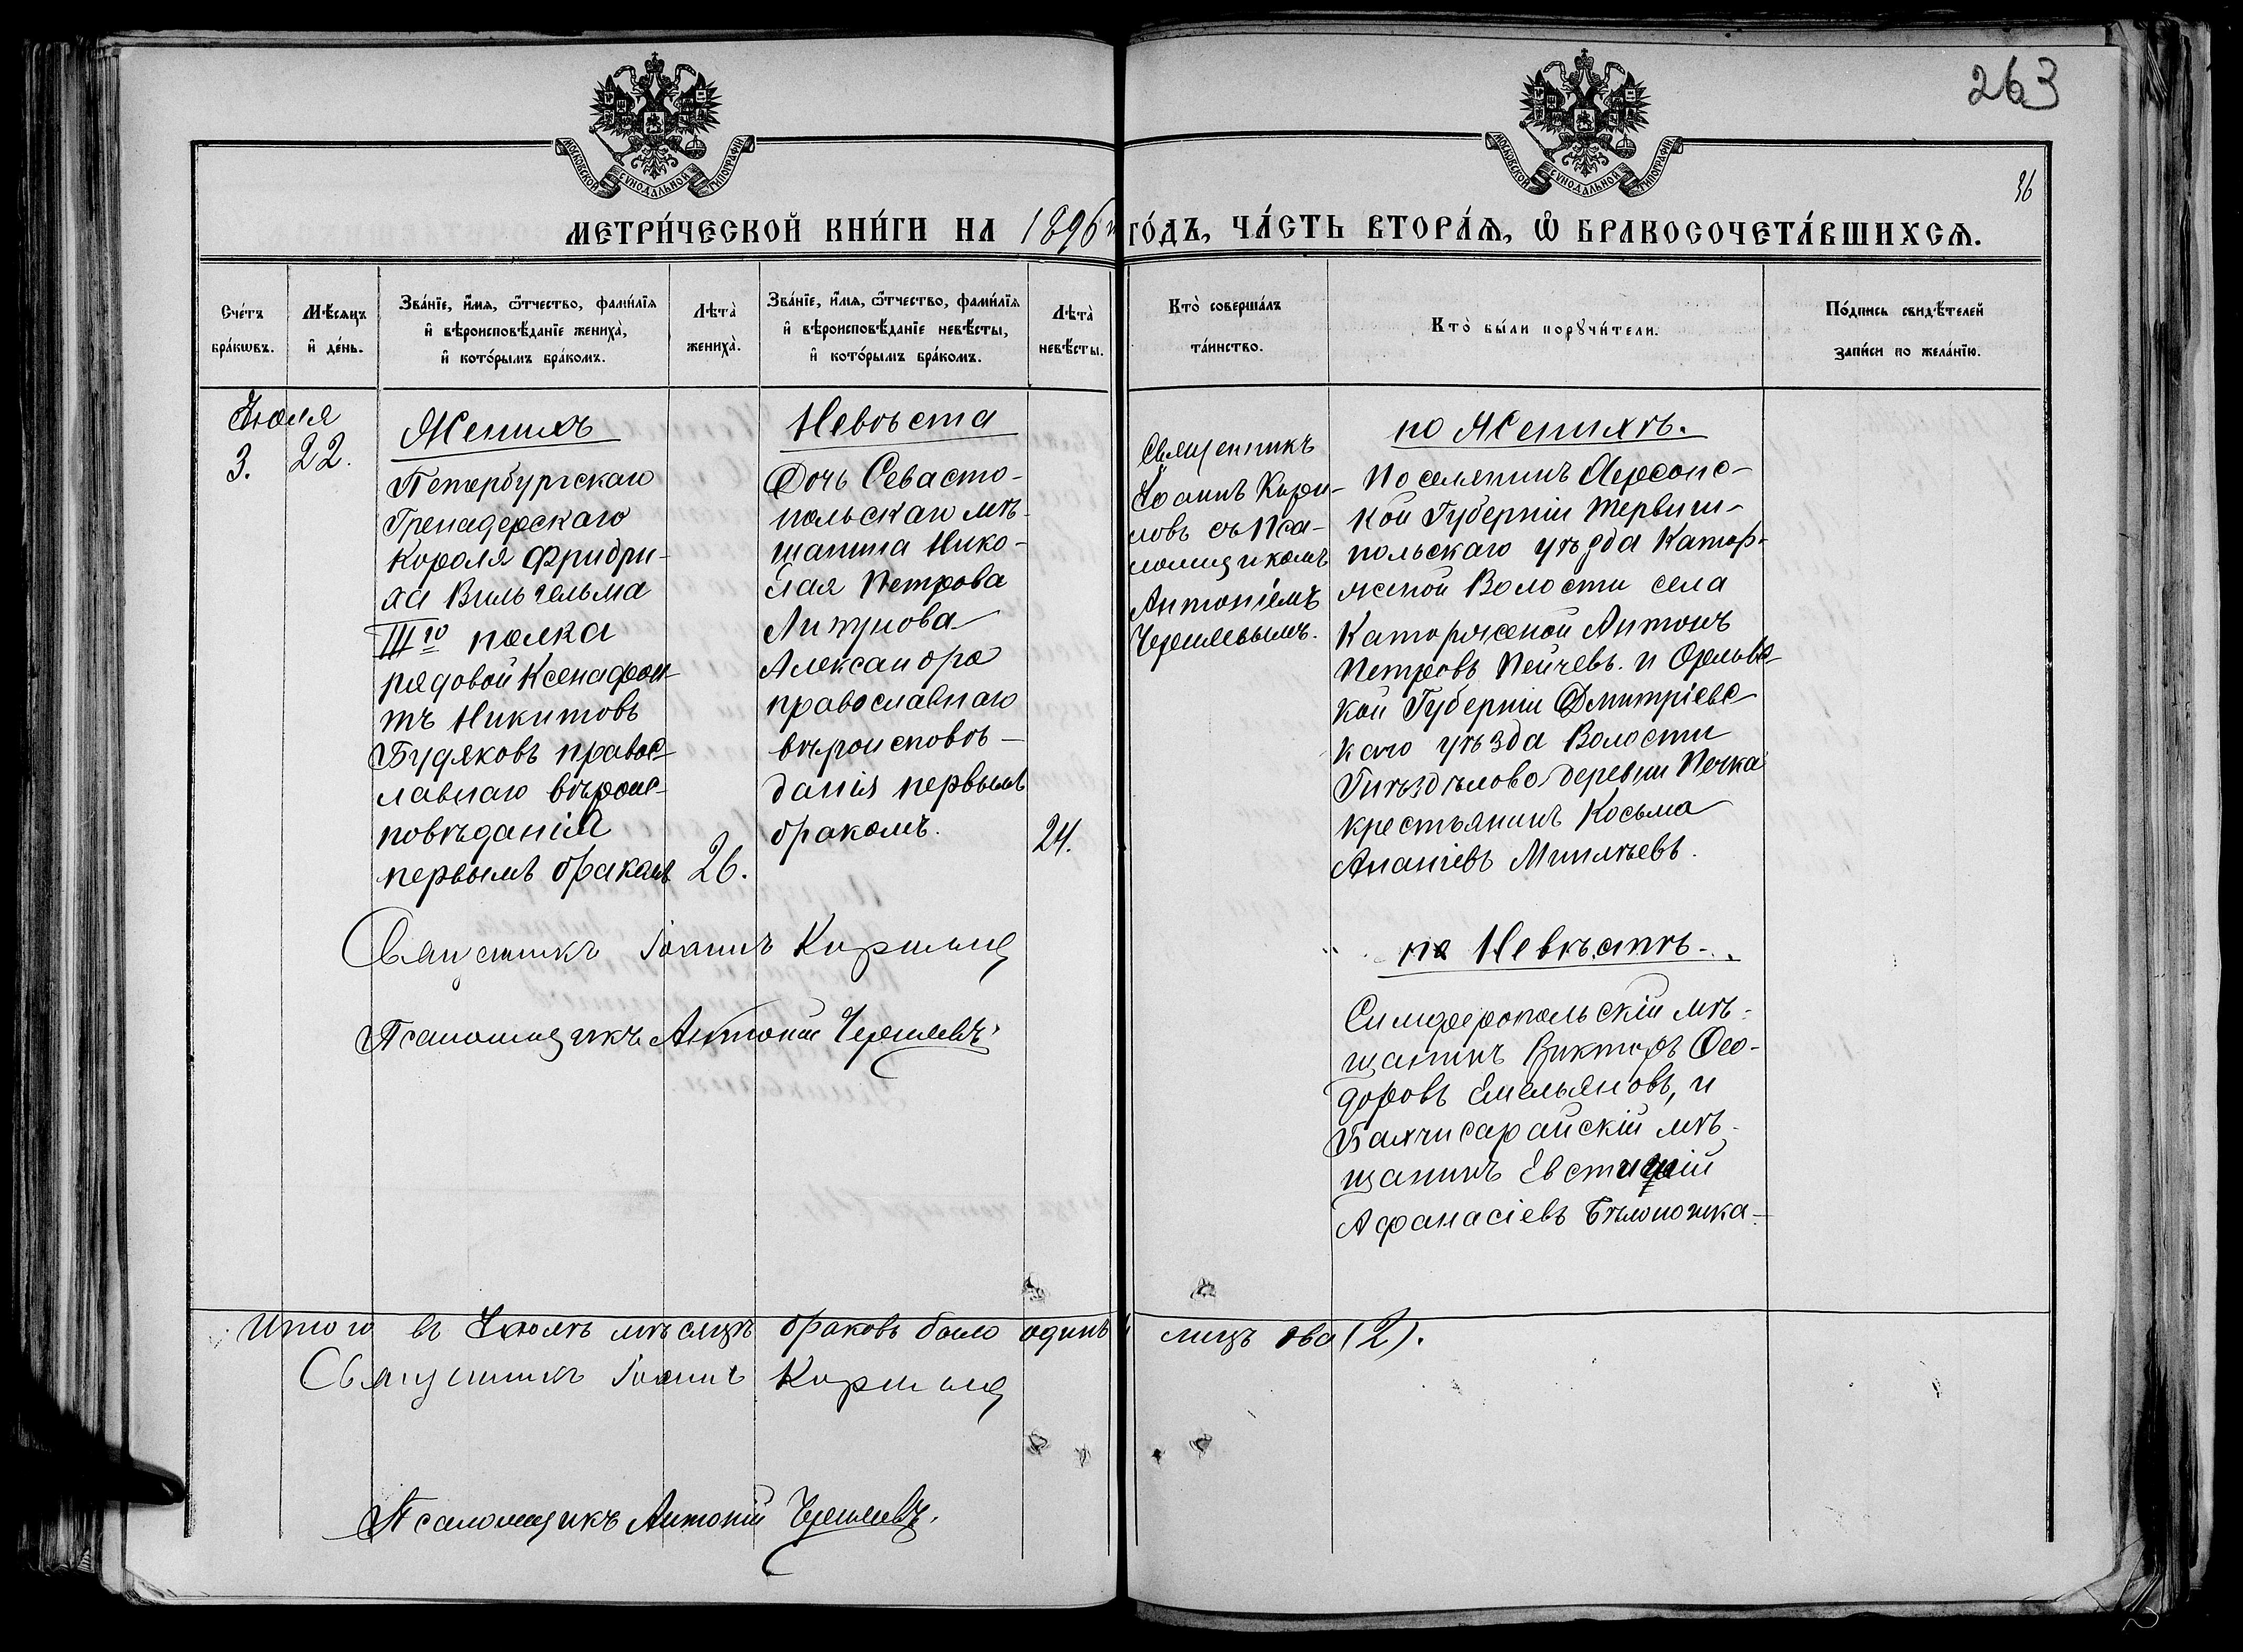 263
96
МОСКОВСКОЙ СѴНОДАЛЬНОЙ ТИПОГРАФІИ
МОСКОВСКОЙ СѴНОДАЛЬНОЙ ТИПОГРАФІИ
МЕТРИ́ЧЕСКОЙ КНИ́ГИ НА 1896й ГО́ДЪ, ЧА́СТЬ ВТОРА́Ѧ, Ѡ҆ БРАКОСОЧЕТА́ВШИХСѦ.
Сче́тъ
бра́кѡвъ.
Мѣ́сѧцъ
и҆ де́нь.
Зва́нїе, и҆́мѧ, ѻ҆́тчество, фами́лїѧ
и҆ вѣроисповѣ́данїе жениха̀,
и҆ кото́рымъ бра́комъ.
Лѣта̀
жениха̀.
Зва́нїе, и҆́мѧ, ѻ҆́тчество, фами́лїѧ
и҆ вѣроисповѣ́данїе невѣ́сты,
и҆ кото́рымъ бра́комъ.
Лѣта̀
невѣ́сты.
Кто̀ соверша́лъ
та́инство.
Кто̀ бы́ли порꙋчи́тели.
По́дпись свидѣ́телей
запи́си по жела́нїю.
Іюля
3.
22.
Женихъ
Петербургскаго
Гренадерскаго
Короля Фридри-
ха Вильгельма
IIIго полка
рядовой Ксенафон-
тъ Никитовъ
Будяковъ правос-
лавнаго вѣроис-
повѣданія
первымъ бракомъ
26.
Невѣста
Дочь Севасто-
польскаго мѣ-
щанина Нико-
лая Петрова
Александра
православнаго
вѣроисповѣ-
данія первымъ
бракомъ.
24.
Священникъ
Іоаннъ Кири-
ловъ съ Пса-
ломщикомъ
Антоніемъ
по Женихѣ.
Поселянинъ Херсонс-
кой Губерніи
польскаго уѣзда Катор-
жной Волости села
Каторженой Антонъ
Петровъ Пейчевъ. и Орловс-
кой Губерніи Дмитріевс-
каго уѣзда Волости
деревни
крестьянинъ Косьма
Ананіевъ
Священникъ Іоаннъ
Псаломщикъ Антоній
по Невѣстѣ.
Симферопольскій мѣ-
щанинъ Викторъ Ѳео-
доровъ Емельяновъ, и
Бахчисарайскій мѣ-
щанинъ
Афанасіевъ Бѣлоножка
Итого въ Іюлѣ мѣсяцѣ браковъ было одинъ лицъ два (2).
Священникъ Іоаннъ
Псаломщикъ Антоній